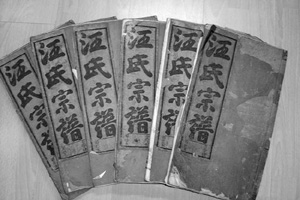 汪氏宗譜
汪氏宗譜
汪氏宗譜
汪氏宗譜
汪氏宗譜
汪氏宗譜